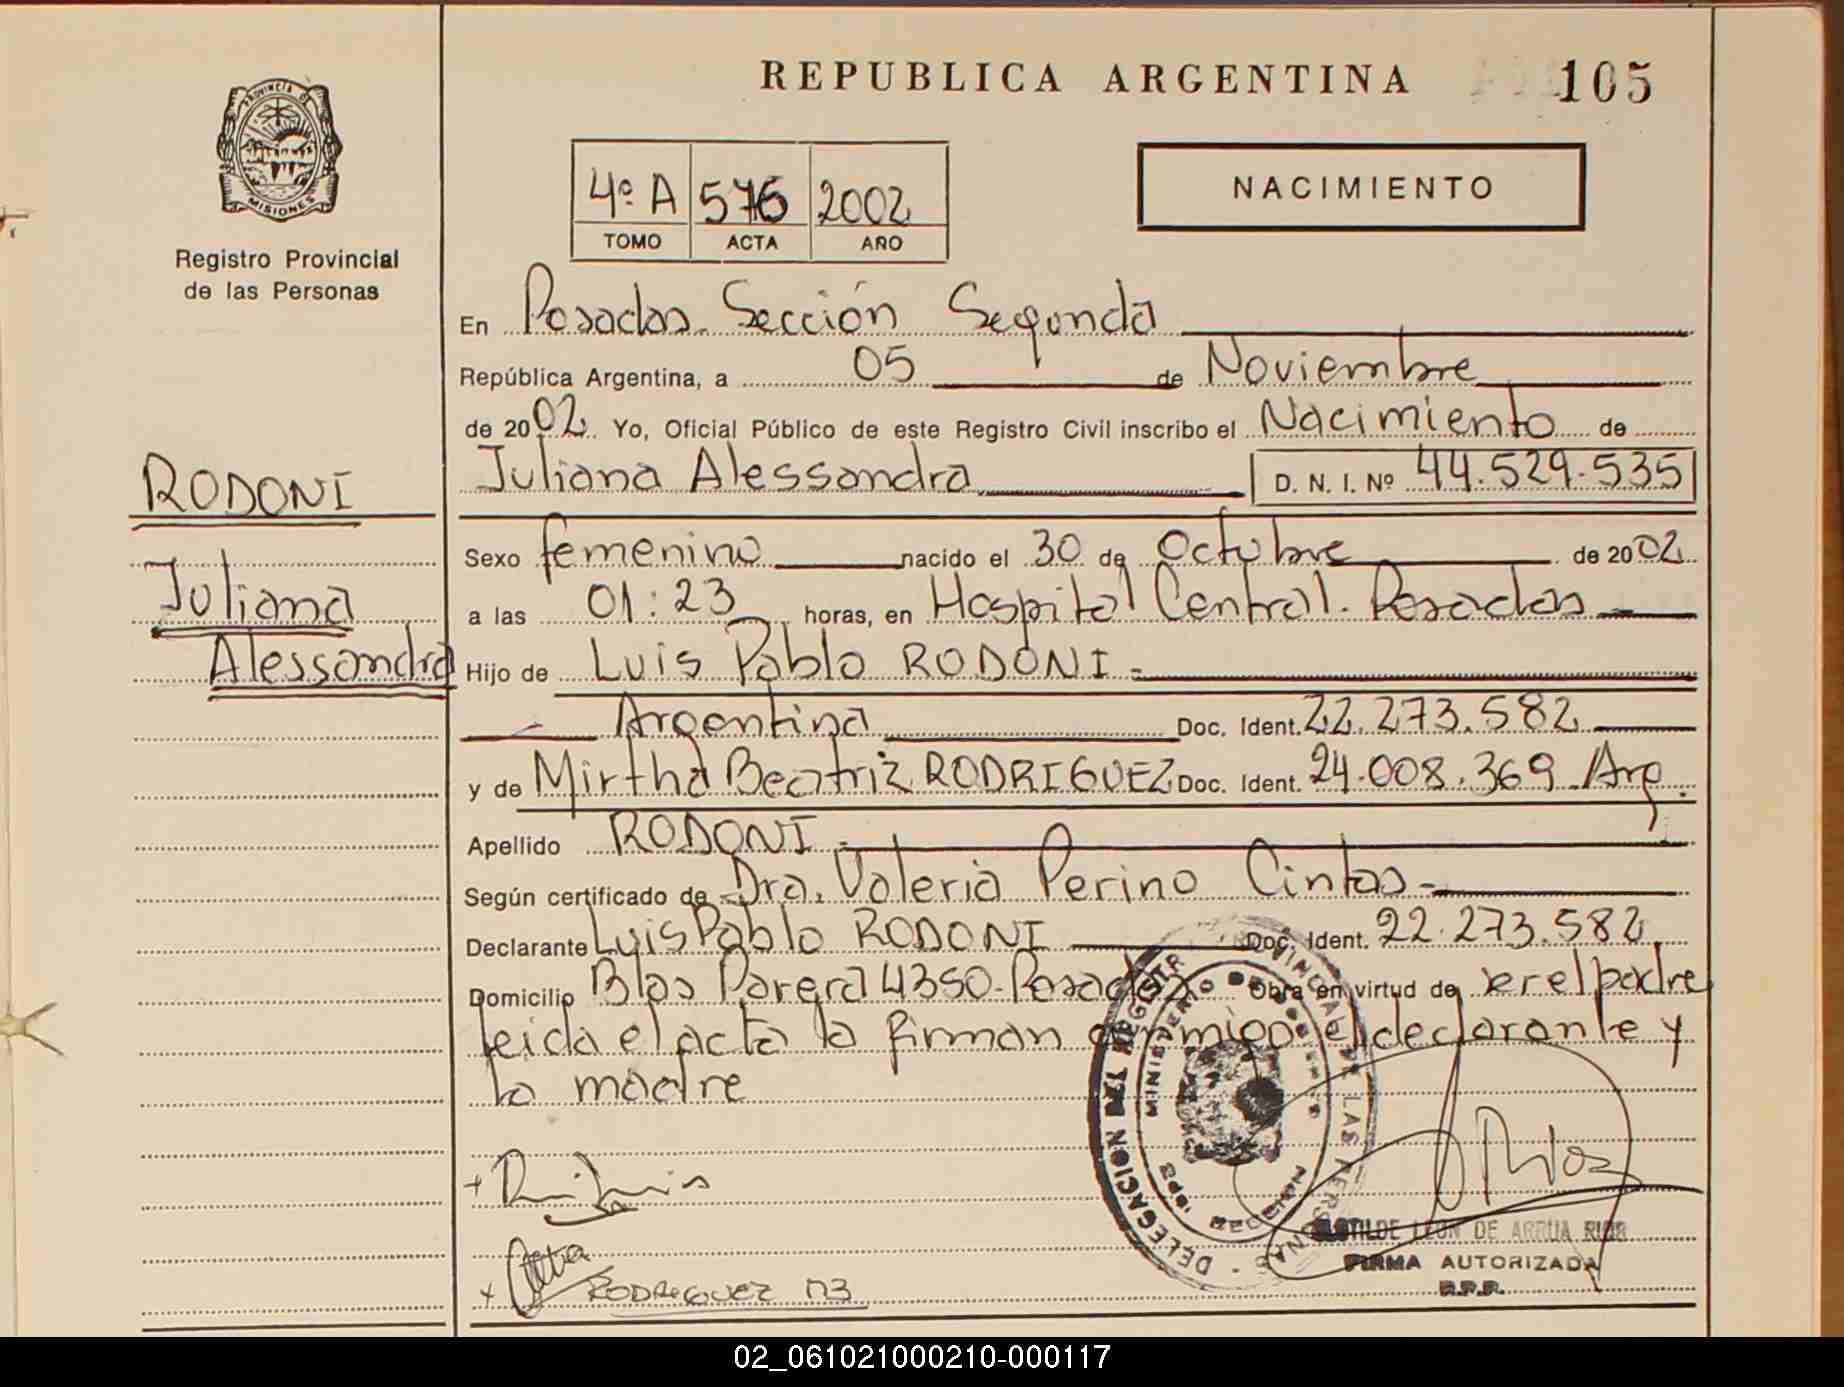 REPUBLICA ARGENTINA 105
PROVINCIA DE
MISIONES
Registro Provincial
de las Personas
4º A 576 2002
TOMO ACTA AÑO
NACIMIENTO
En Posadas. Sección Segunda
República Argentina, a 05 de Noviembre
de 2002 Yo, Oficial Público de este Registro Civil inscribo el Nacimiento de
Juliana Alessandra D. N. I. Nº 44.529.535
RODONI
Juliana
Alessandra
Sexo femenino nacido el 30 de Octubre de 2002
a las 01:23 horas, en Hospital Central. Posadas
Hijo de Luis Pablo RODONI
Argentina Doc. Ident. 22.273.582
y de Mirtha Beatriz RODRIGUEZ Doc. Ident. 24.008.369 Arg.
Apellido RODONI
Según certificado de Dra. Valeria Perino Cintas
Declarante Luis Pablo RODONI Doc. Ident. 22.273.582
Domicilio Blas Parera 4350-Posadas Obra en virtud de ser el padre
leida el acta la firman conmigo el declarante y
la madre
DELEGACION DEL REGISTRO PROVINCIAL DE LAS PERSONAS
MINISTERIO DE GOBIERNO
RODRIGUEZ MB
CLOTILDE LEON DE ARRUA RIOS
FIRMA AUTORIZADA
R.P.P.
02_061021000210-000117